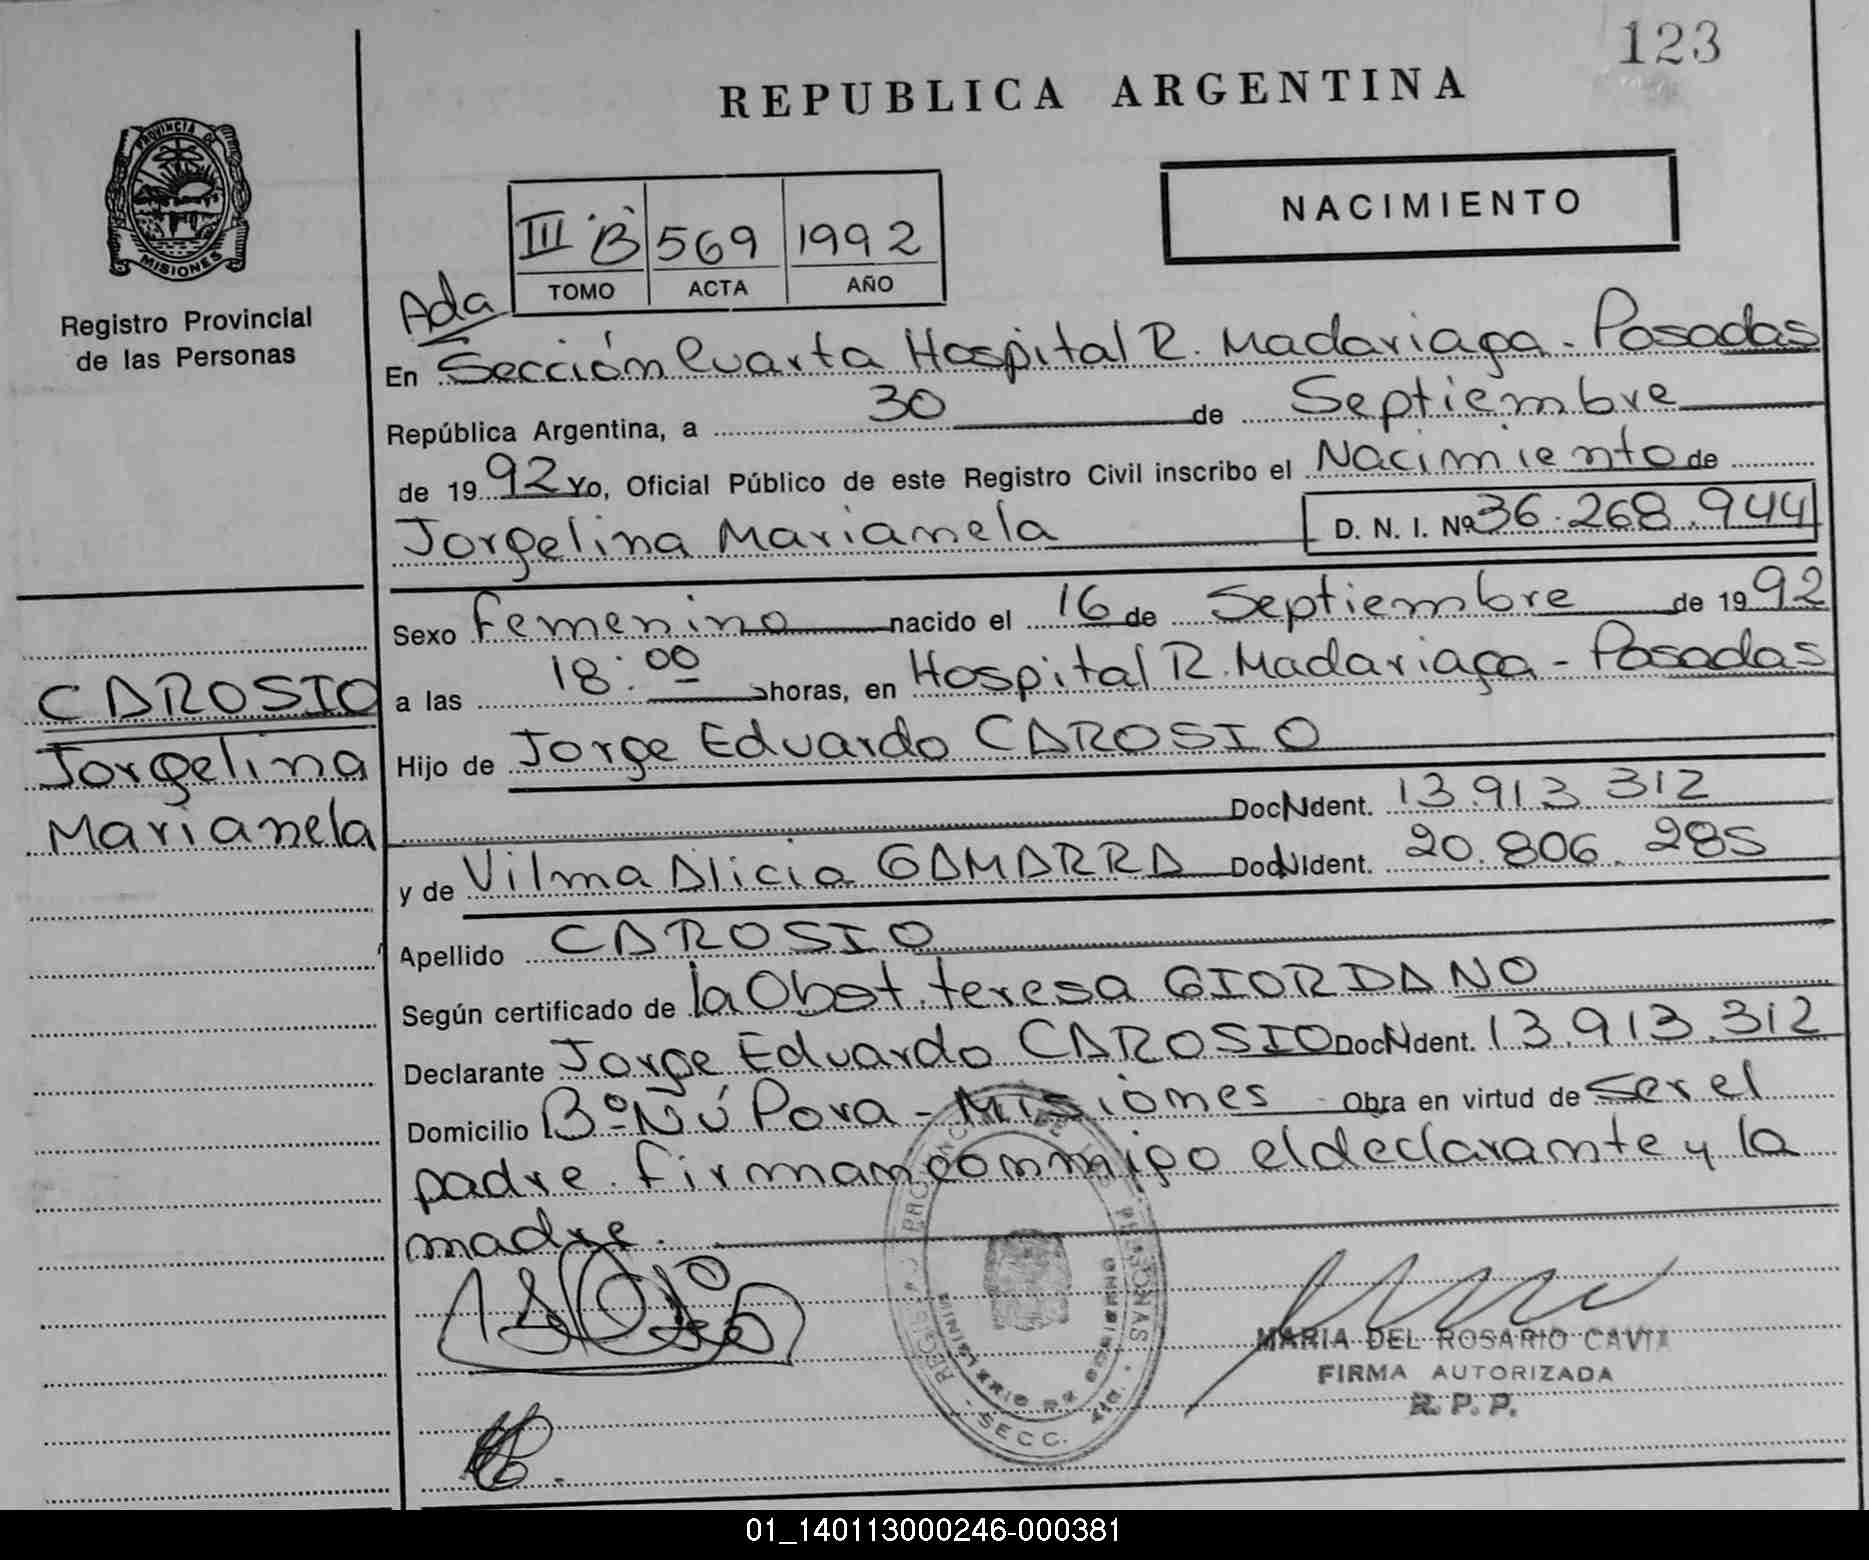 123
REPUBLICA ARGENTINA
PROVINCIA DE
MISIONES
Registro Provincial
de las Personas
NACIMIENTO
III "B" 569 1992
TOMO ACTA AÑO
Ada
En Sección Cuarta Hospital R. Madariaga - Posadas
República Argentina, a 30 de Septiembre
de 1992 Yo, Oficial Público de este Registro Civil inscribo el Nacimiento de
Jorgelina Marianela D. N. I. Nº 36.268.944
Sexo Femenino nacido el 16 de Septiembre de 1992
a las 18:00 horas, en Hospital R. Madariaga - Posadas
CAROSIO
Jorgelina
Marianela
Hijo de Jorge Eduardo CAROSIO
Doc. Ident. 13.913.312
y de Vilma Alicia GAMARRA Doc. Ident. 20.806.285
Apellido CAROSIO
Según certificado de la Obst. teresa GIORDANO
Declarante Jorge Eduardo CAROSIO Doc. Ident. 13.913.312
Domicilio Bº Ñú Pora - Misiones Obra en virtud de ser el
padre. firman conmigo el declarante y la
madre.
REGISTRO PROVINCIAL DE LAS PERSONAS
MINISTERIO DE GOBIERNO
SECC. 4ta.
MARIA DEL ROSARIO CAVIA
FIRMA AUTORIZADA
R. P. P.
01_140113000246-000381